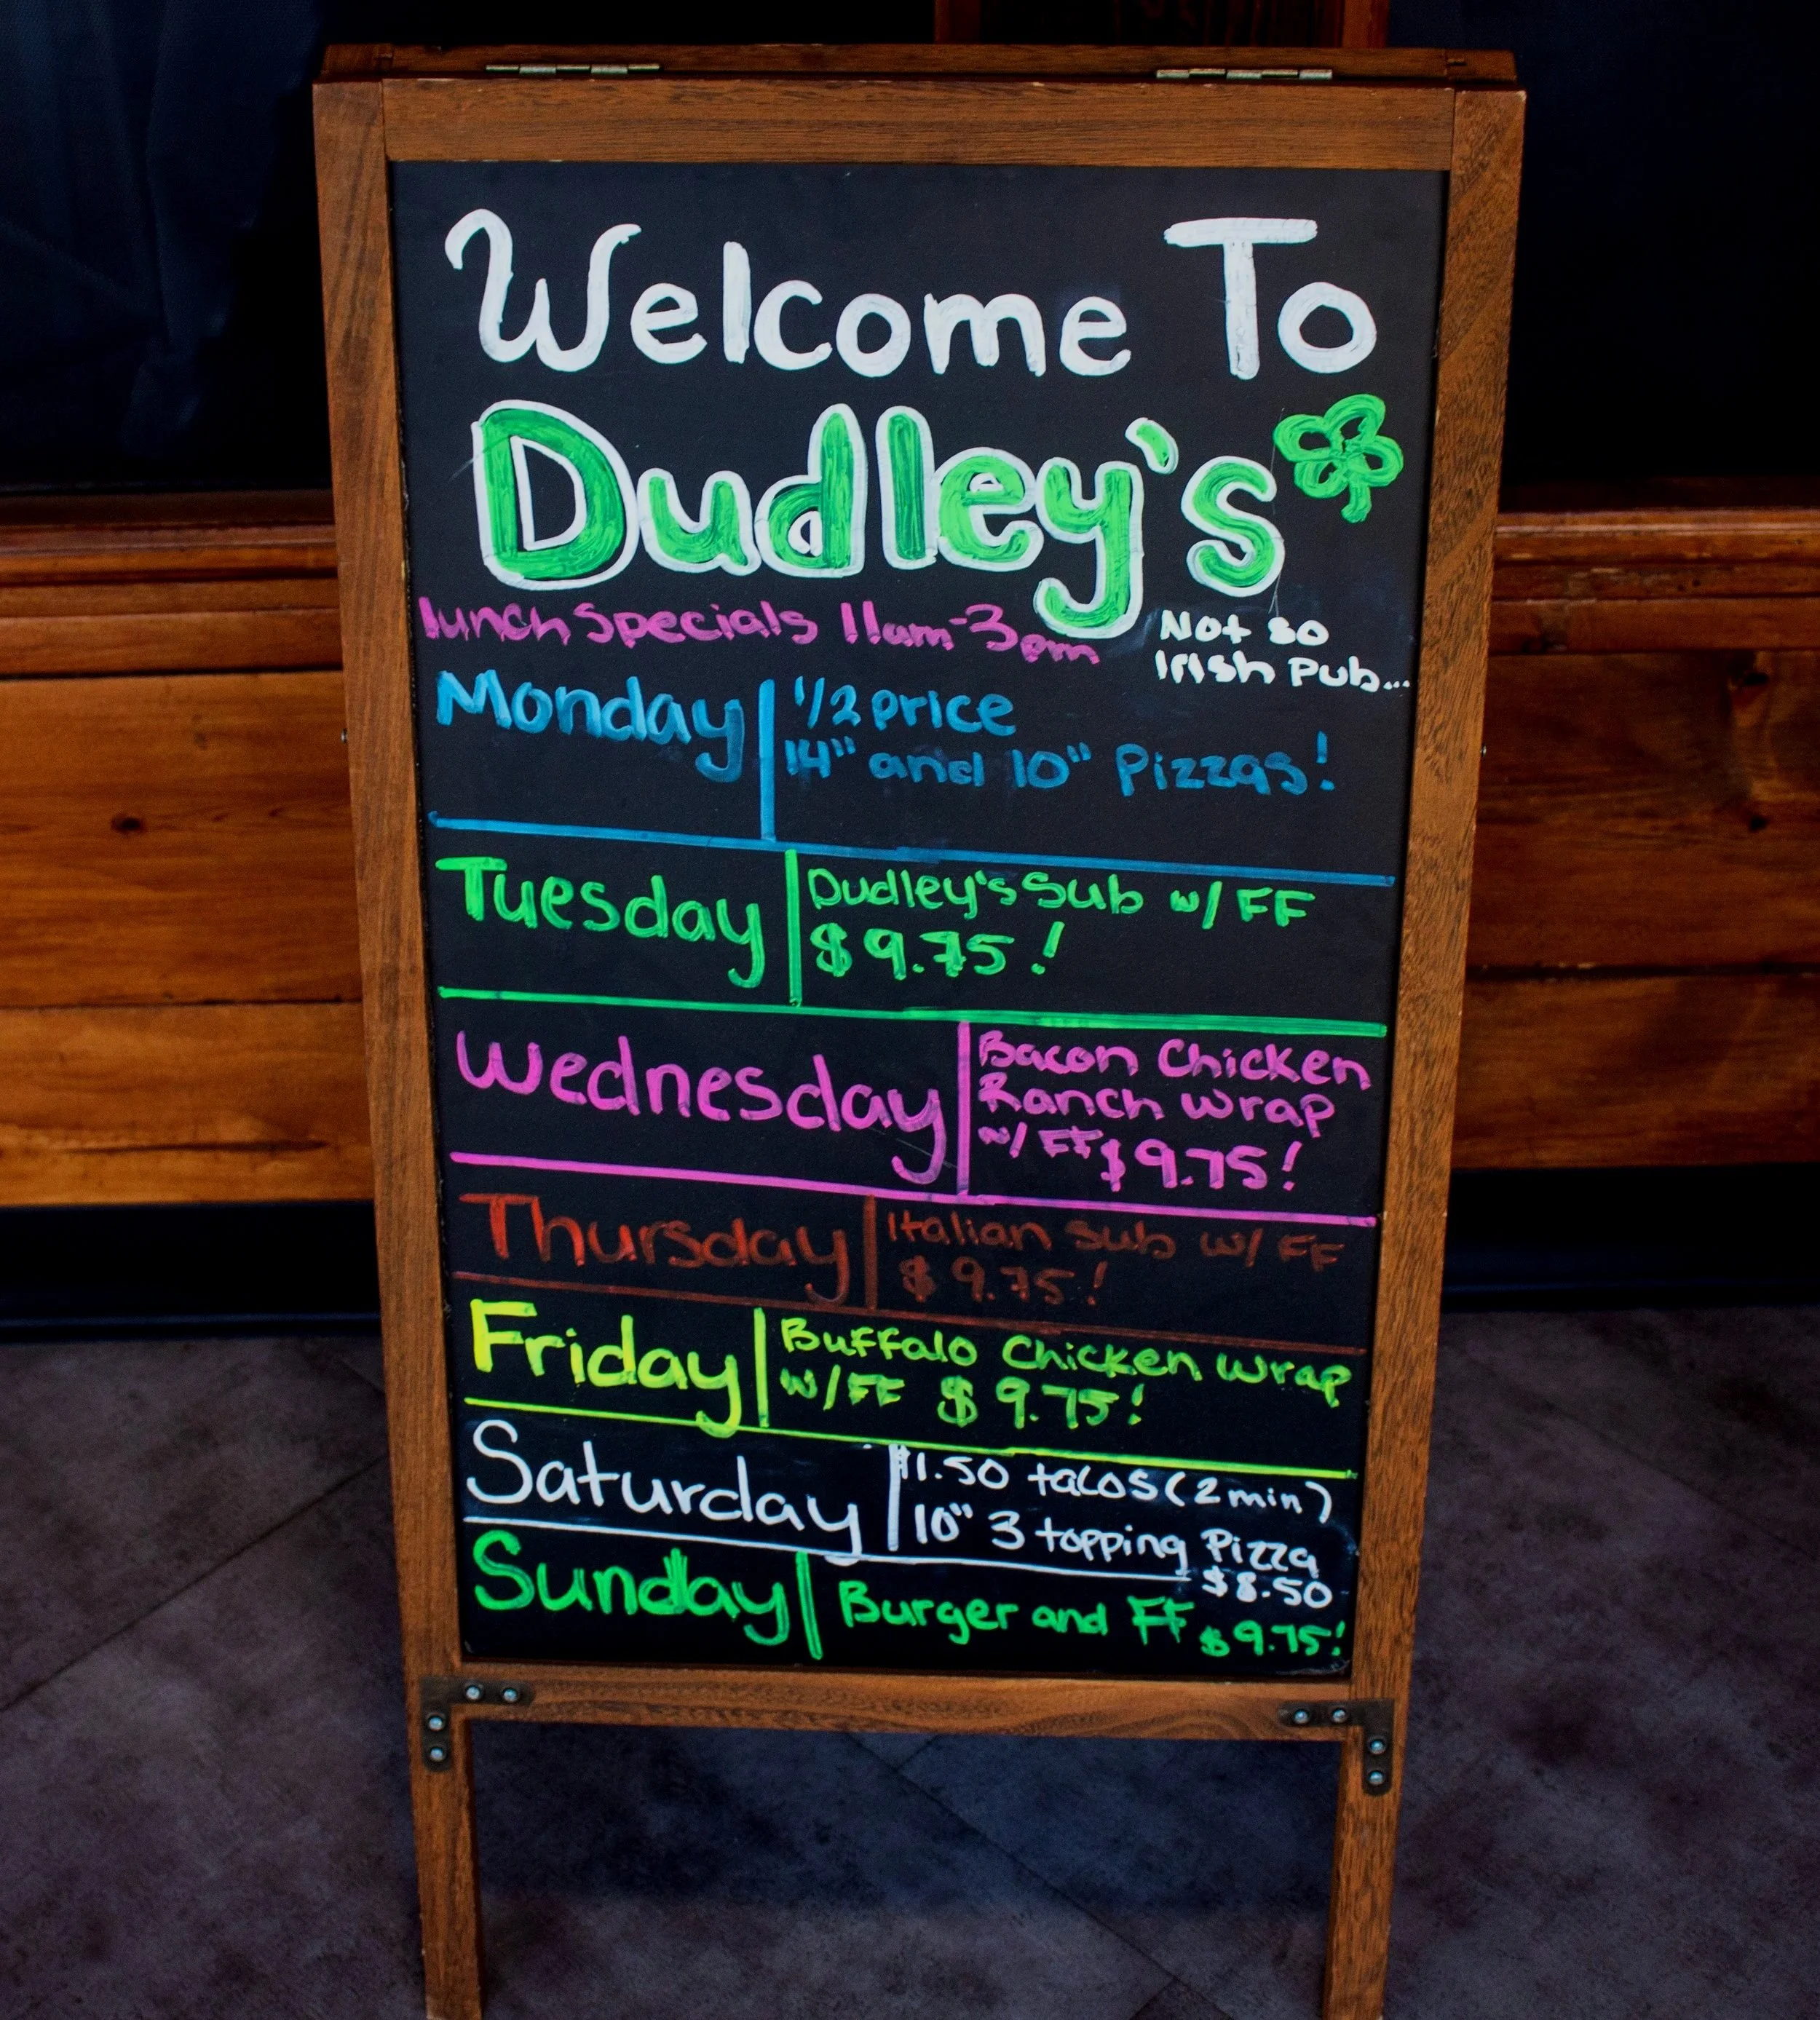 Welcome To
Dudley's
lunch specials 11am-3pm
Not so
Irish Pub...
Monday
1/2 price
14" and 10" Pizzas!
Tuesday
Dudley's Sub w/ FF
$9.75!
Wednesday
Bacon Chicken
Ranch wrap
w/ FF $9.75!
Thursday
Italian sub w/ FF
$9.75!
Friday
Buffalo Chicken wrap
w/FF $9.75!
Saturday
$1.50 tacos (2 min)
10" 3 topping Pizza
$8.50
Sunday
Burger and FF $9.75!